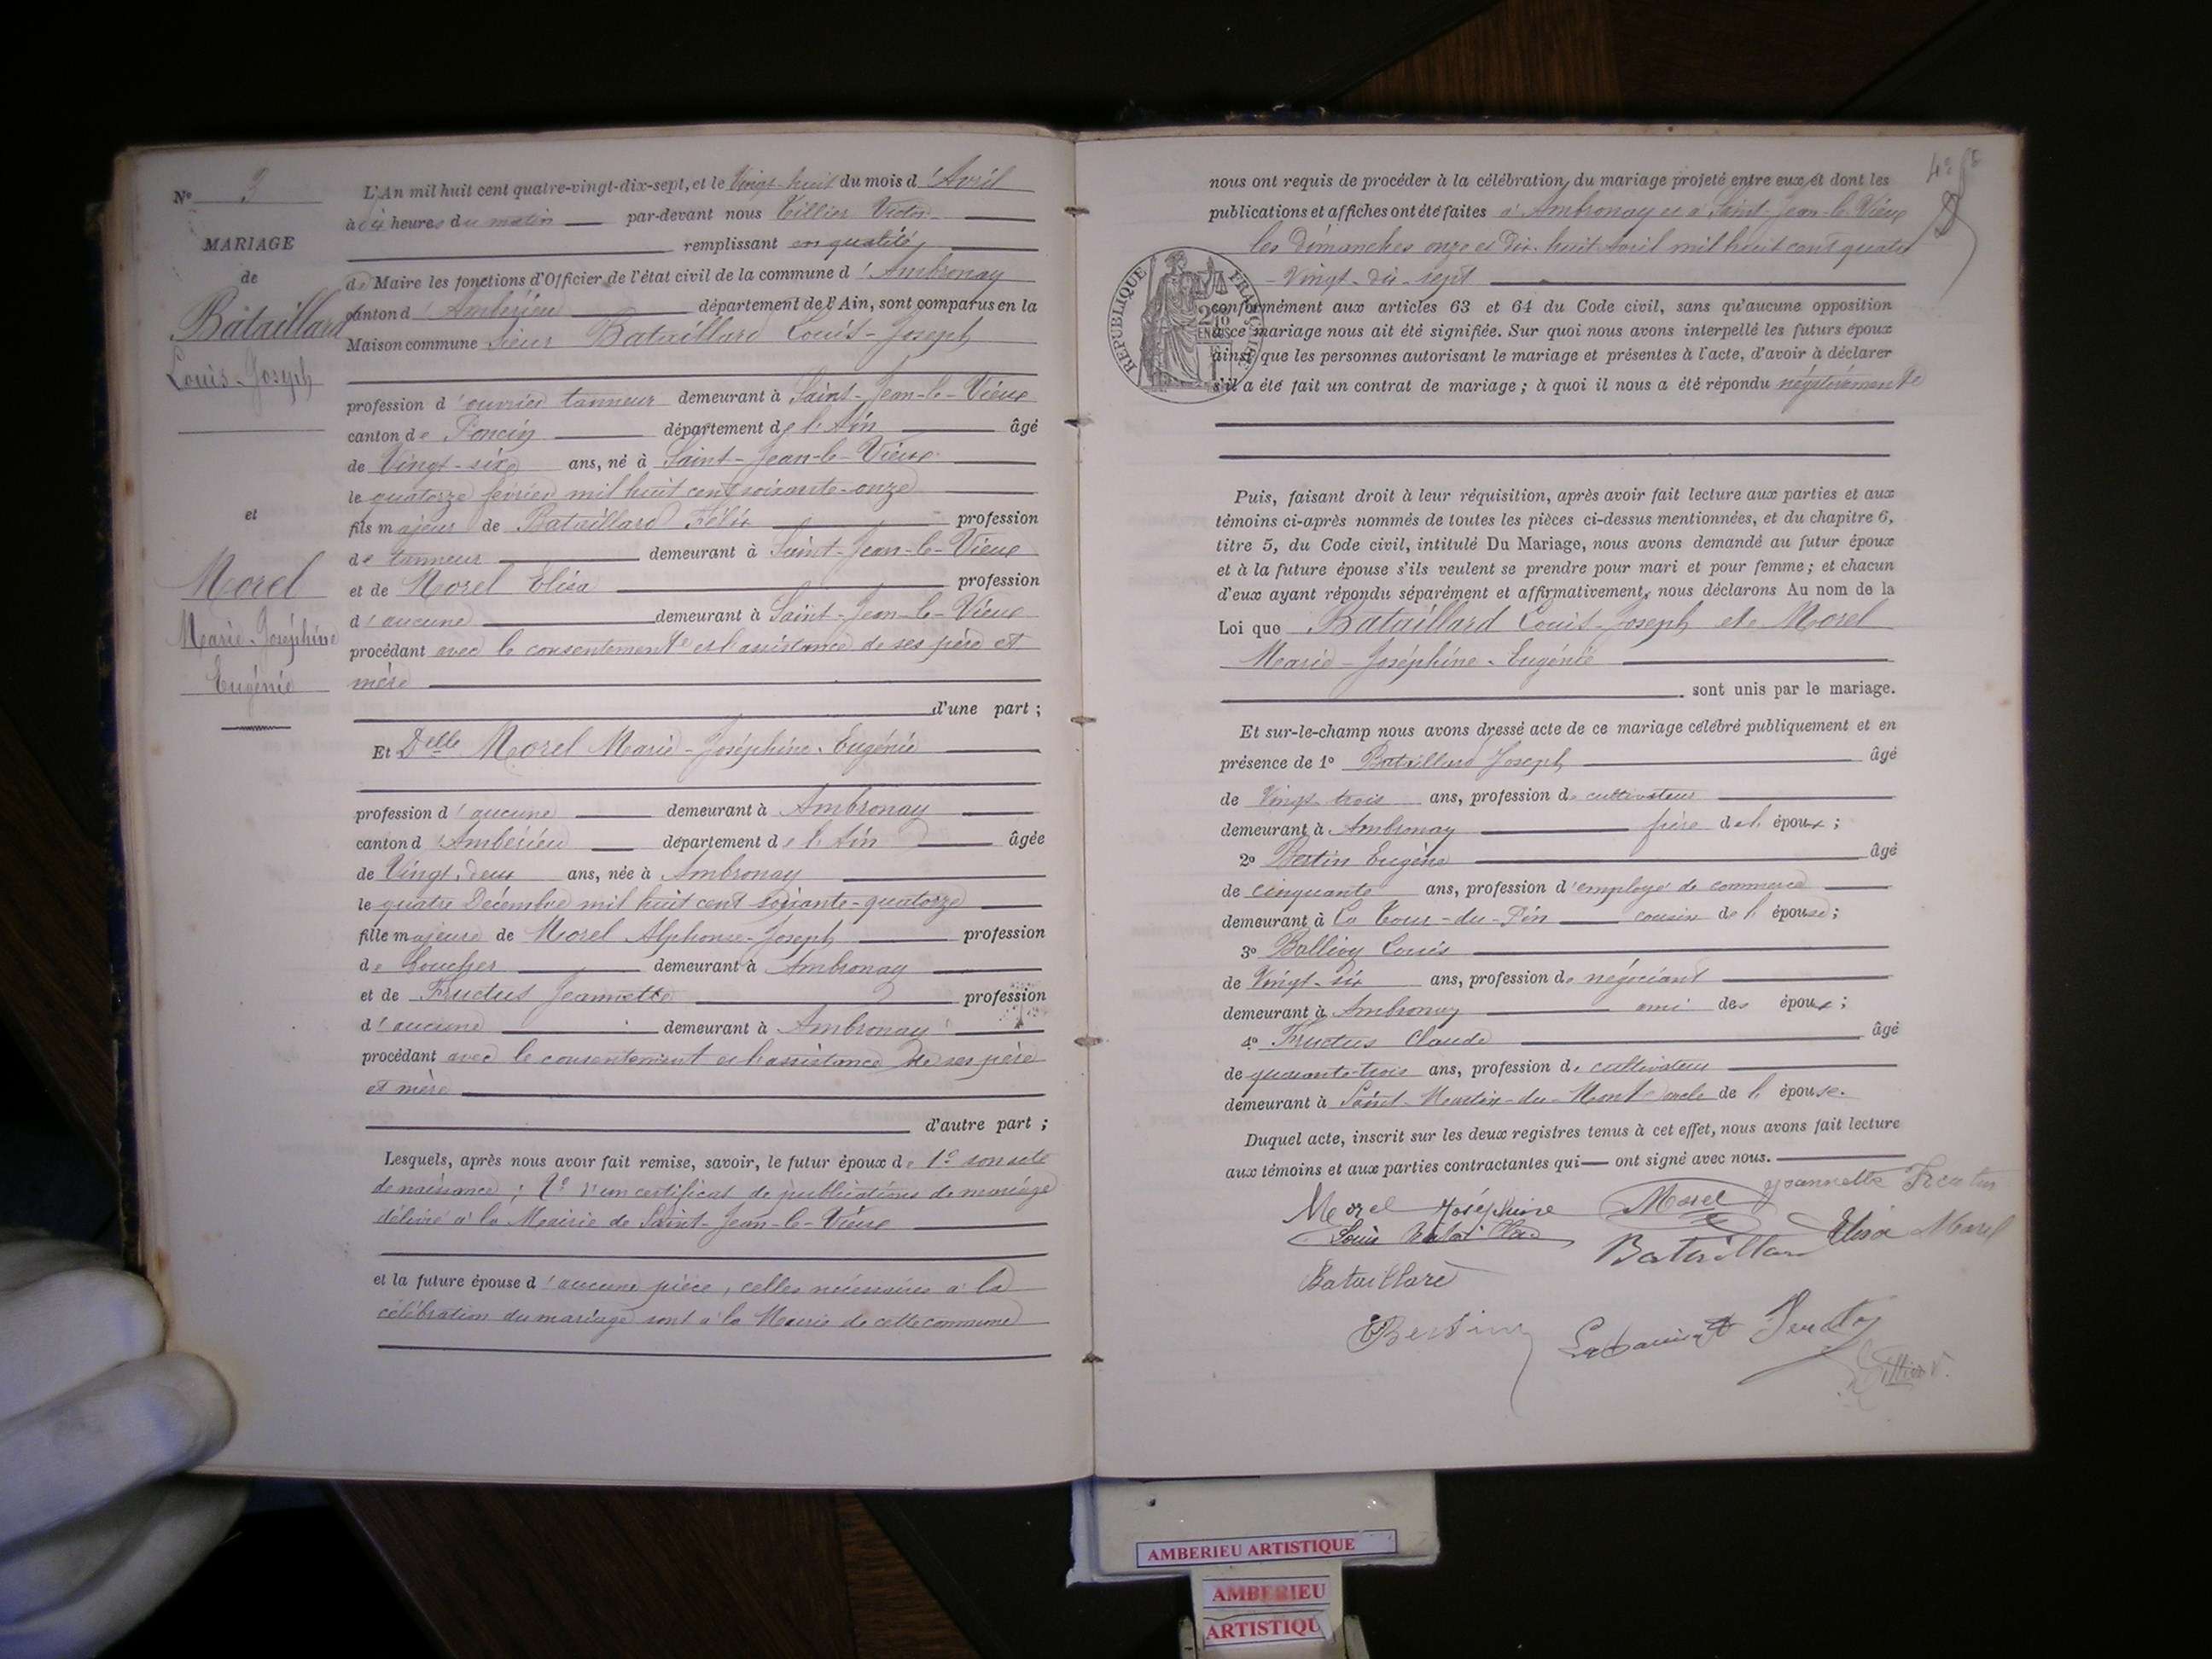 N° 3
MARIAGE
de
Bataillard
Louis-Joseph
et
Morel
Marie-Joséphine
Eugénie
L'An mil huit cent quatre-vingt-dix-sept, et le Vingt-huit du mois d'Avril
à dix heures du matin par-devant nous Tillier Victor
remplissant en qualité
de Maire les fonctions d'Officier de l'état civil de la commune d'Ambronay
canton d'Ambérieu département de l'Ain, sont comparus en la
Maison commune sieur Bataillard Louis-Joseph
profession d'ouvrier tanneur demeurant à Saint-Jean-le-Vieux
canton de Poncin département de l'Ain âgé
de Vingt-six ans, né à Saint-Jean-le-Vieux
le quatorze février mil huit cent soixante-onze
fils majeur de Bataillard Félix profession
de tanneur demeurant à Saint-Jean-le-Vieux
et de Morel Elisa profession
d'aucune demeurant à Saint-Jean-le-Vieux
procédant avec le consentement et l'assistance de ses père et
mère
d'une part ;
Et Delle Morel Marie-Joséphine-Eugénie
profession d'aucune demeurant à Ambronay
canton d'Ambérieu département de l'Ain âgée
de Vingt-deux ans, née à Ambronay
le quatre Décembre mil huit cent soixante-quatorze
fille majeure de Morel Alphonse-Joseph profession
de boucher demeurant à Ambronay
et de Fructus Jeannette profession
d'aucune demeurant à Ambronay
procédant avec le consentement et l'assistance de ses père
et mère
d'autre part ;
Lesquels, après nous avoir fait remise, savoir, le futur époux de 1° son acte
de naissance ; 2° d'un certificat de publications de mariage
délivré à la Mairie de Saint-Jean-le-Vieux
et la future épouse d'aucune pièce, celles nécessaires à la
célébration du mariage sont à la Mairie de cette commune
nous ont requis de procéder à la célébration du mariage projeté entre eux et dont les
publications et affiches ont été faites à Ambronay et à Saint-Jean-le-Vieux
les dimanches onze et dix-huit Avril mil huit cent quatre
-Vingt-dix-sept
RÉPUBLIQUE FRANÇAISE
conformément aux articles 63 et 64 du Code civil, sans qu'aucune opposition
à ce mariage nous ait été signifiée. Sur quoi nous avons interpellé les futurs époux
ainsi que les personnes autorisant le mariage et présentes à l'acte, d'avoir à déclarer
s'il a été fait un contrat de mariage ; à quoi il nous a été répondu négativement
Puis, faisant droit à leur réquisition, après avoir fait lecture aux parties et aux
témoins ci-après nommés de toutes les pièces ci-dessus mentionnées, et du chapitre 6,
titre 5, du Code civil, intitulé Du Mariage, nous avons demandé au futur époux
et à la future épouse s'ils veulent se prendre pour mari et pour femme ; et chacun
d'eux ayant répondu séparément et affirmativement, nous déclarons Au nom de la
Loi que Bataillard Louis-Joseph et Morel
Marie-Joséphine-Eugénie
sont unis par le mariage.
Et sur-le-champ nous avons dressé acte de ce mariage célébré publiquement et en
présence de 1° Bataillard Joseph âgé
de Vingt-trois ans, profession de cultivateur
demeurant à Ambronay frère de l'époux ;
2° Bertin Eugène âgé
de cinquante ans, profession d'employé de commerce
demeurant à La Tour-du-Pin cousin de l'épouse ;
3° Ballivy Louis
de Vingt-six ans, profession de négociant
demeurant à Ambronay ami des époux ;
4° Fructus Claude âgé
de quarante-trois ans, profession de cultivateur
demeurant à Saint-Martin-du-Mont oncle de l'épouse.
Duquel acte, inscrit sur les deux registres tenus à cet effet, nous avons fait lecture
aux témoins et aux parties contractantes qui ont signé avec nous.
Morel Joséphine Morel Jeannette Fructus
Louis Bataillard Bataillard Elisa Morel
Bataillard
Bertin
Tillier V.
AMBERIEU ARTISTIQUE
AMBERIEU
ARTISTIQU